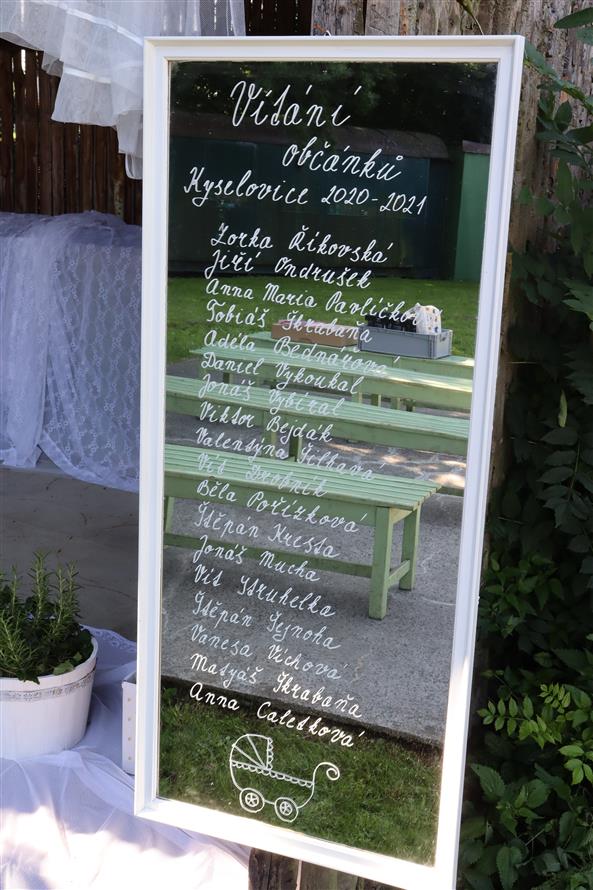 Vítání
občánků
Kyselovice 2020-2021
Zorka Říkovská
Jiří Ondrušek
Anna Maria Pavlíčková
Tobiáš Škrabaňa
Adéla Bednářová
Daniel Vykoukal
Jonáš Vybíral
Viktor Bejdák
Valentýna Žilhavá
Vít Drobník
Běla Pořízková
Štěpán Kresta
Jonáš Mucha
Vít Struhelka
Štěpán Šejnoha
Vanesa Víchová
Matyáš Škrabaňa
Anna Caletková